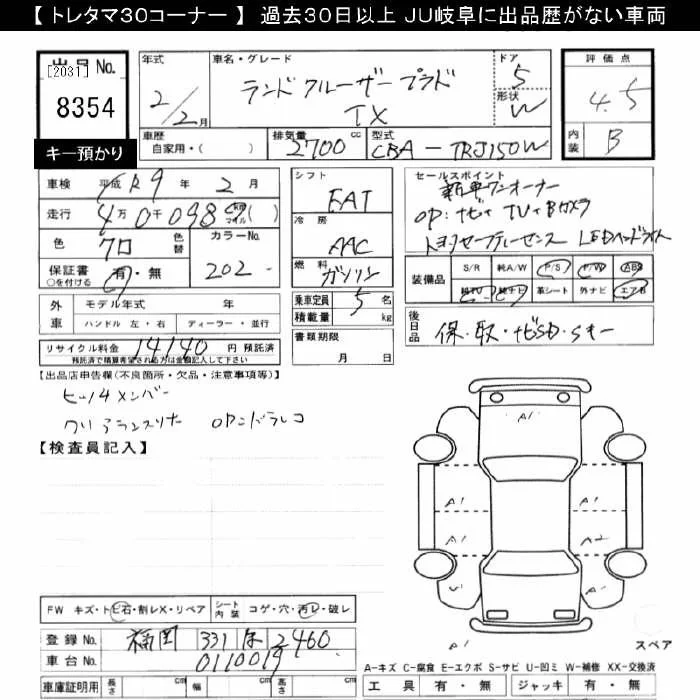 【 トレタマ30コーナー 】 過去30日以上 JU岐阜に出品歴がない車両
出品No.
[2031]
8354
キー預かり
年式
2/2月
車名・グレード
ランドクルーザー プラド
TX
ドア
5
形状
W
評価点
4.5
内装
B
車歴
自家用・( )
排気量
2700 cc
型式
CBA-TRJ150W
車検
平成 R9 年 2 月
走行
4万0千098 km マイル ( )
色
クロ
色替
カラーNo.
202
保証書
○を付ける
有・無
シフト
FAT
冷房
AAC
燃料
ガソリン
乗車定員
5 名
積載量
kg
書類期限
月 日
セールスポイント
新車ワンオーナー
OP:ナビ+TV+Bカメラ
トヨタセーフティーセンス LEDヘッドライト
装備品
S/R
純A/W
P/S
P/W
ABS
純TV
純ナビ
革シート
外ナビ
エアB
後日品
保・取・ナビSD・Sキー
外車
モデル年式 年
ハンドル 左・右
ディーラー・並行
リサイクル料金 14140 円 預託済
預託済で精算希望される方は金額記入して下さい
【出品店申告欄(不良箇所・欠品・注意事項等)】
ヒッチメンバー
クリアランスソナー OPンドラレコ
【検査員記入】
A1
A1
A1
A2
A1
FW キズ・トビ石・割レX・リペア
シート内装
コゲ・穴・汚レ・破レ
登録No.
福岡 331 2460
車台No.
0110019
車庫証明用
長さ cm
幅 cm
高さ cm
スペア
A-キズ C-腐食 E-エクボ S-サビ U-凹ミ W-補修 XX-交換済
工具 有・無
ジャッキ 有・無